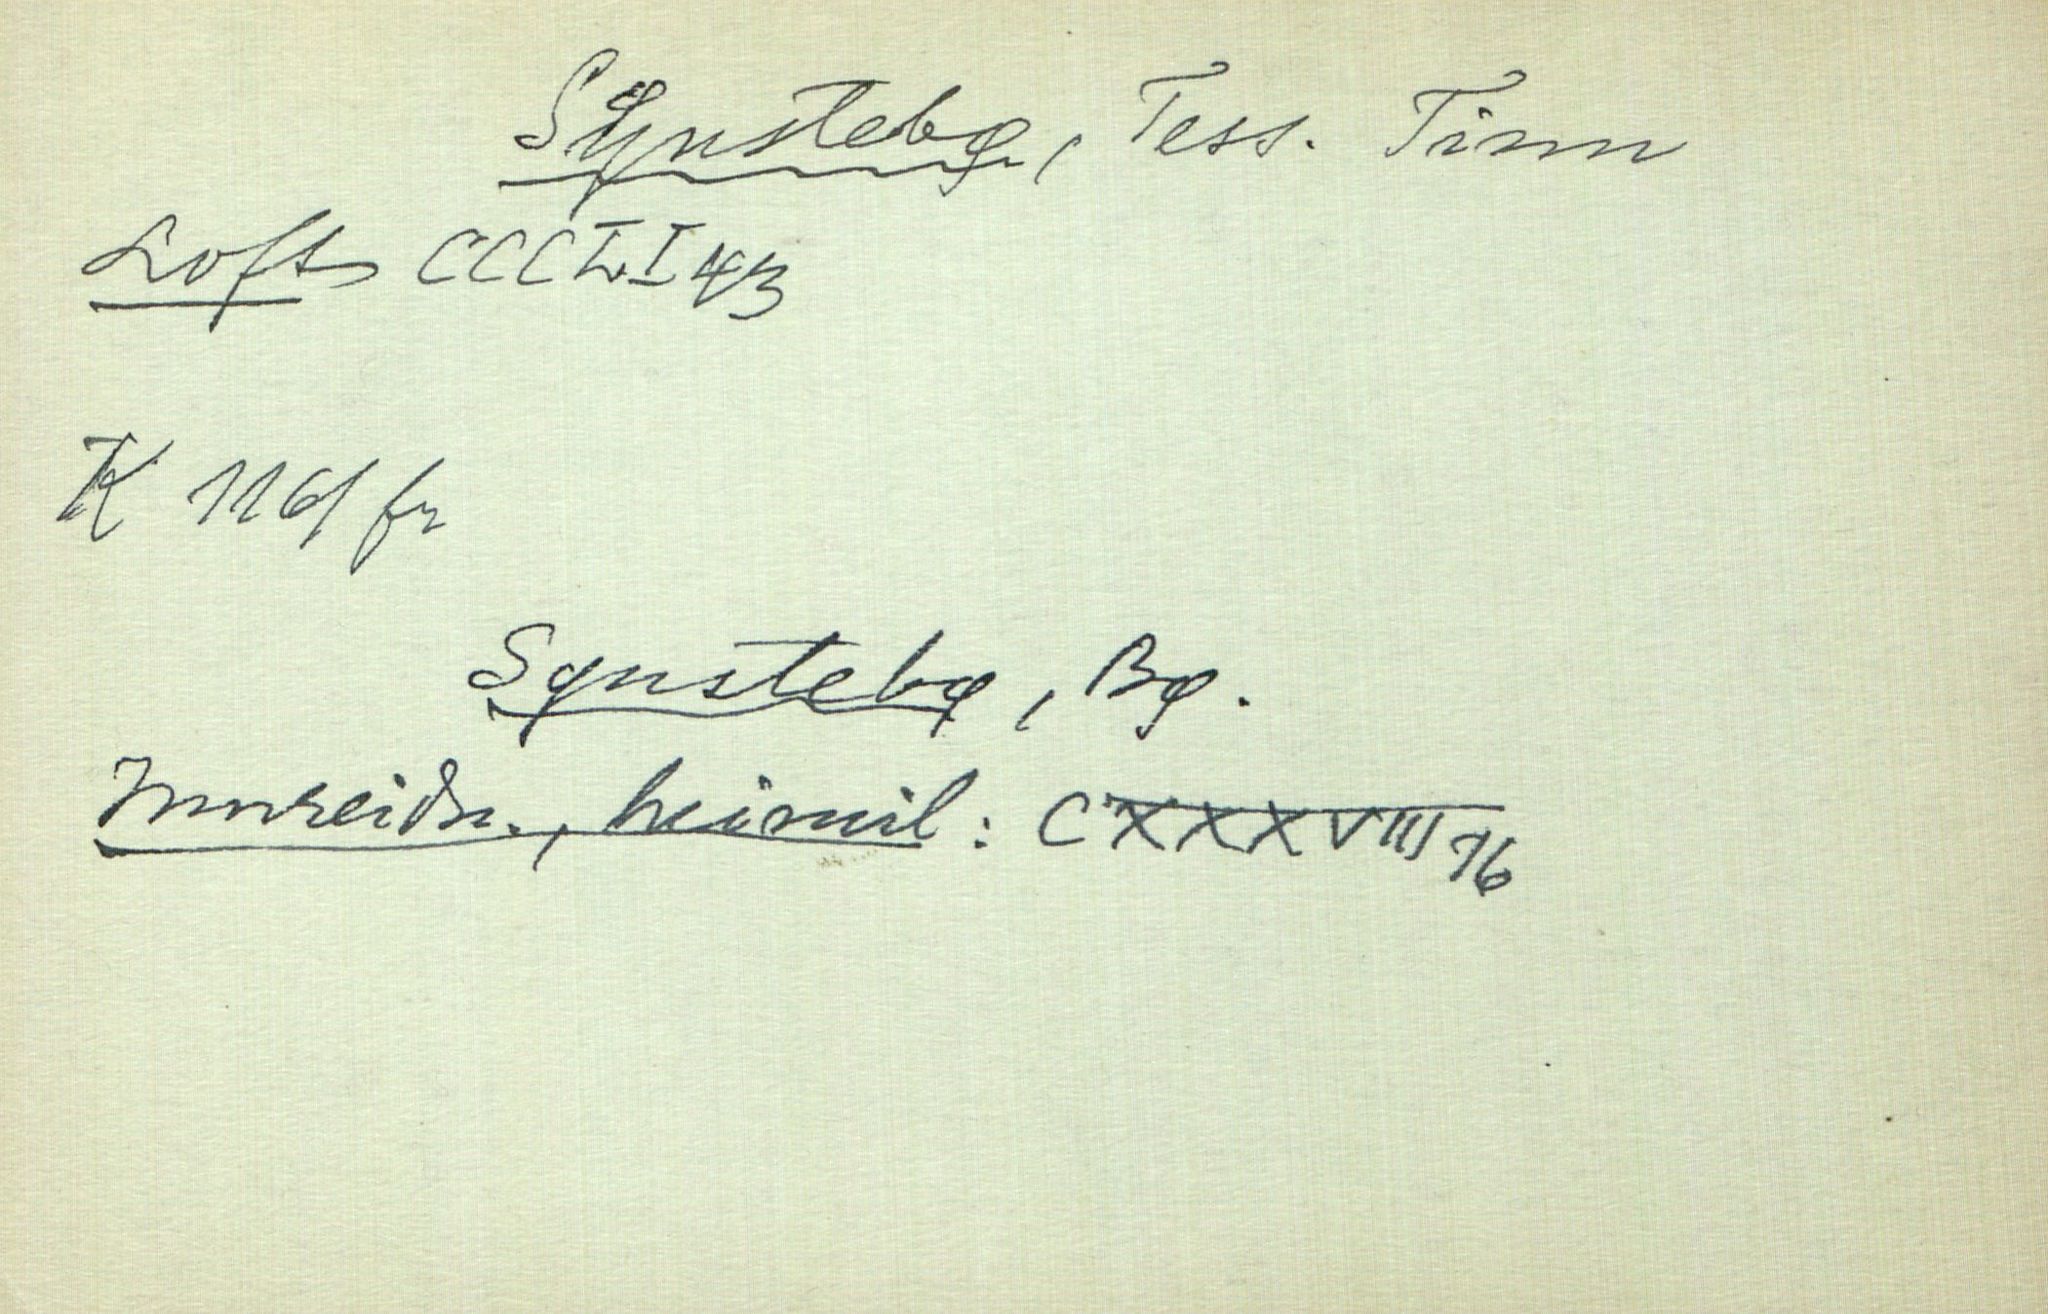 Synstebø, Tess. Tinn
Loft CCCLI 43
K 116f fr
Synstebø, Bø.
Innreidn., heimil: CXXXVIII 76